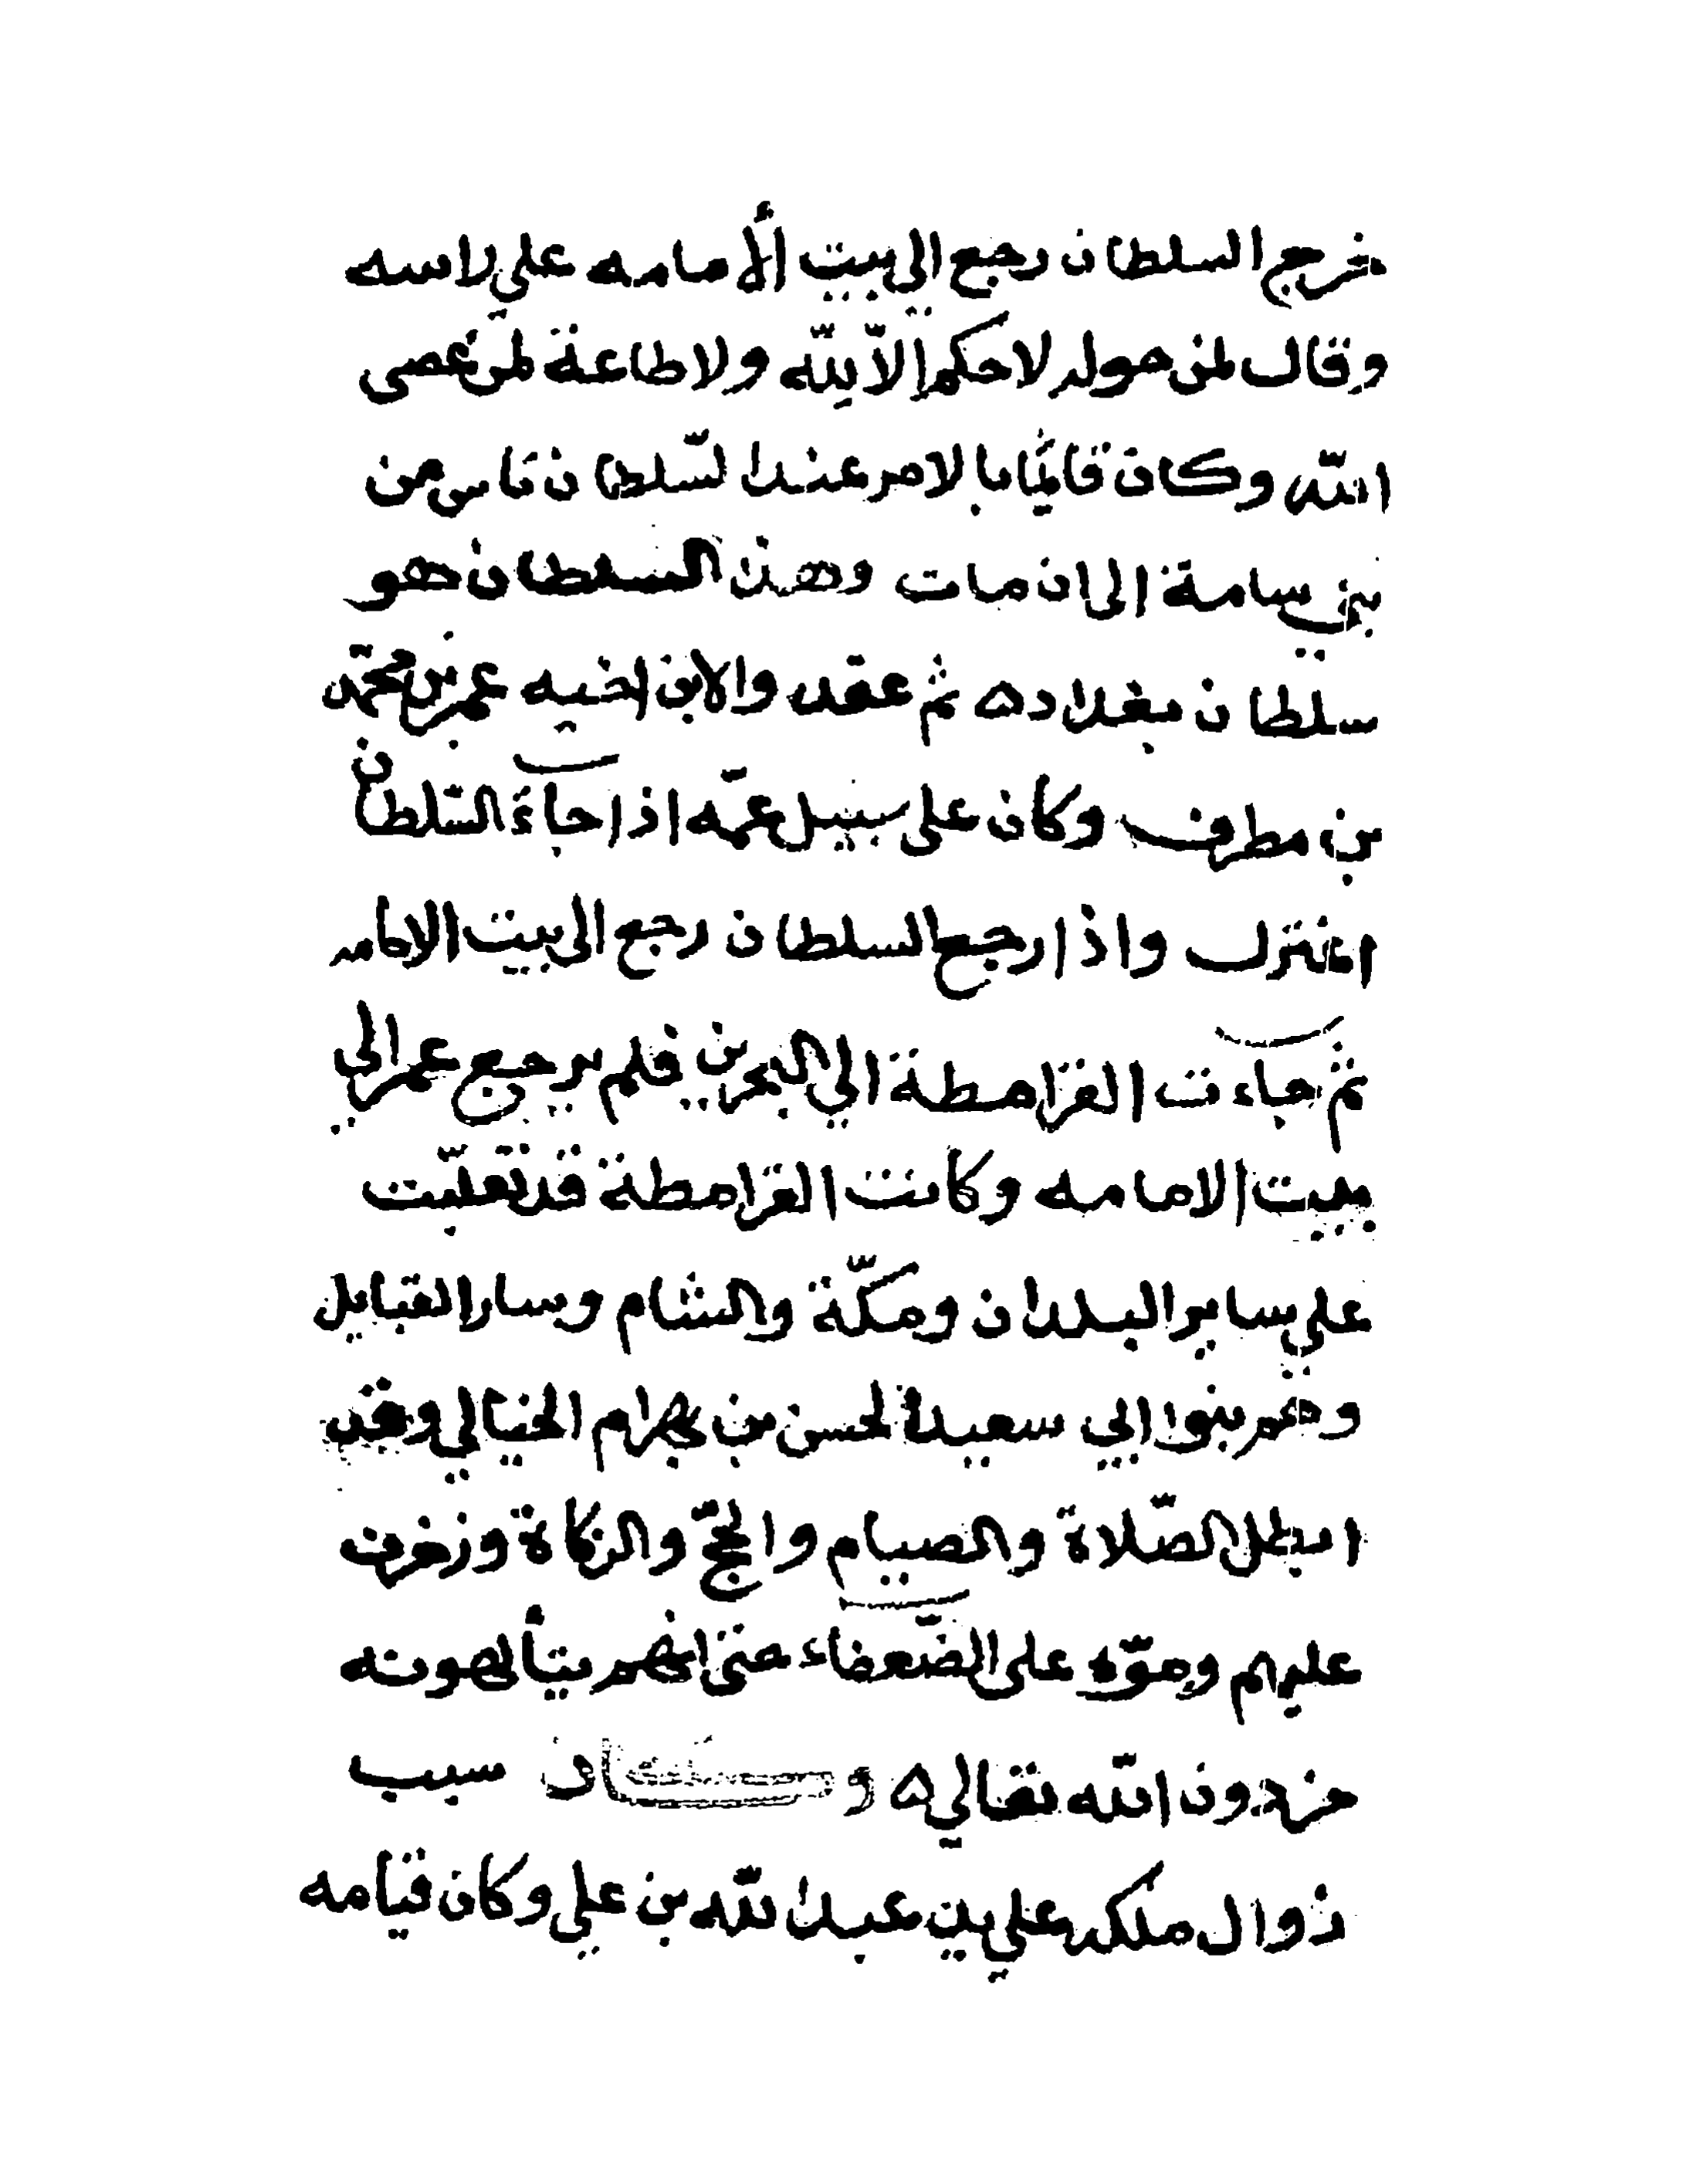 خرج السلطان رجع الي بيت ألامامه علي راسه
وقال لمن حوله لا حكم الاّ لله ولا طاعة لمن عصى
الله وكان قائما بالامر عند السّلطان ناس من
بني سامة الى ان مات وهذا السلطان هو
سلطان بغداد ه ثم عقدوا لابن اخيه عمر بن محمّد
بن مطرف وكان على سبيل عمّه اذا جاءَ السّلطان
اعتزل واذا رجع السلطان رجع الى بيت الامامه
ثم جاءت القرامطة الي البحرين فلم يرجع عمر الي
بيت الامامه وكانت القرامطة قد تغلبّت
علي ساير البلدان ومكّة والشام وساير القبايل
وهم بنوا ابي سعيد الحسن بن بهرام الجنابي وقد
ابطل الصّلاة والصيام والحجّ والزكاة وزخرف
عليهم وموّه على الضّعفاء حتى انهم يتألهونه
من دون الله تعالي ه وكان سبب
زوال ملكه علي يد عبد الله بن علي وكان قيامه